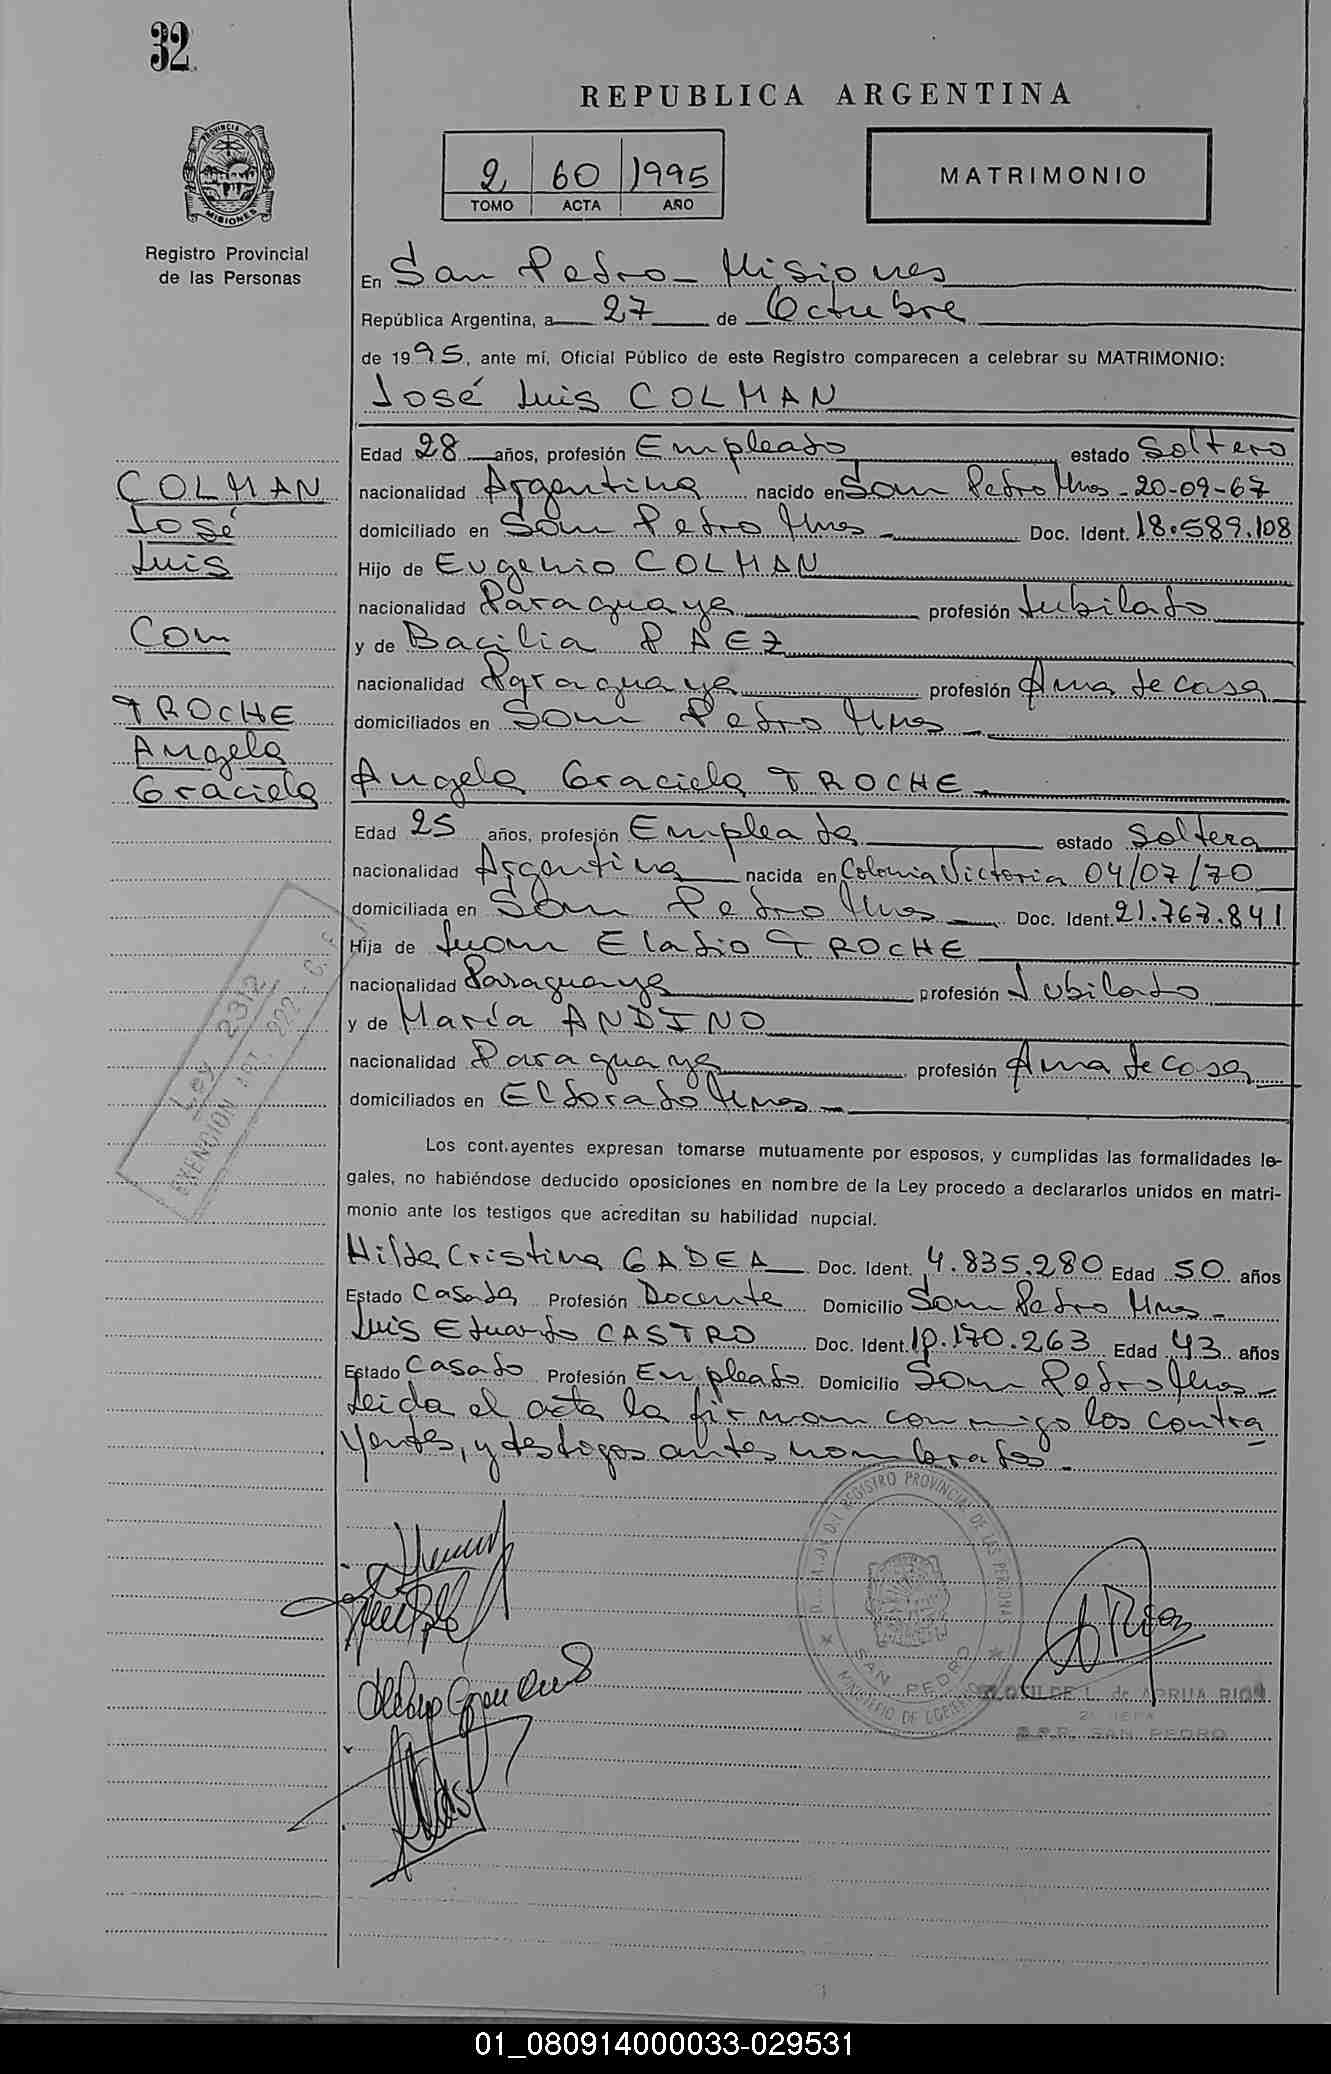 32
REPUBLICA ARGENTINA
2 60 1995
TOMO ACTA AÑO
MATRIMONIO
PROVINCIA DE MISIONES
Registro Provincial
de las Personas
En San Pedro - Misiones
República Argentina, a 27 de Octubre
de 1995, ante mí, Oficial Público de este Registro comparecen a celebrar su MATRIMONIO:
José Luis COLMAN
Edad 28 años, profesión Empleado estado Soltero
COLMAN
José
Luis
Com
TROCHE
Angela
Graciela
nacionalidad Argentina nacido en San Pedro Mnes - 20-09-67
domiciliado en San Pedro Mnes - Doc. Ident. 18.589.108
Hijo de Eugenio COLMAN
nacionalidad Paraguaya profesión Jubilado
y de Bacilia PAEZ
nacionalidad Paraguaya profesión Ama de casa
domiciliados en San Pedro Mnes -
Angela Graciela TROCHE
Edad 25 años, profesión Empleada estado Soltera
nacionalidad Argentina nacida en Colonia Victoria 04/07/70
domiciliada en San Pedro Mnes Doc. Ident. 21.767.841
Hija de Juan Eladio TROCHE
nacionalidad Paraguaya profesión Jubilado
y de María ANDINO
nacionalidad Paraguaya profesión Ama de casa
domiciliados en Eldorado Mnes -
Ley 2312
EXENCION 222
Los cont.ayentes expresan tomarse mutuamente por esposos, y cumplidas las formalidades le-
gales, no habiéndose deducido oposiciones en nombre de la Ley procedo a declararlos unidos en matri-
monio ante los testigos que acreditan su habilidad nupcial.
Hilda Cristina GADEA Doc. Ident. 4.835.280 Edad 50 años
Estado Casada Profesión Docente Domicilio San Pedro Mnes -
Luis Eduardo CASTRO Doc. Ident. 10.170.263 Edad 43 años
Estado Casado Profesión Empleado Domicilio San Pedro Mnes -
Leida el acta la firman conmigo los contra
yentes, y testigos antes nombrados -
REGISTRO PROVINCIAL DE LAS PERSONAS
SAN PEDRO
MINISTERIO DE GOBIERNO
L. de ARRUA RIOS
SAN PEDRO
01_080914000033-029531